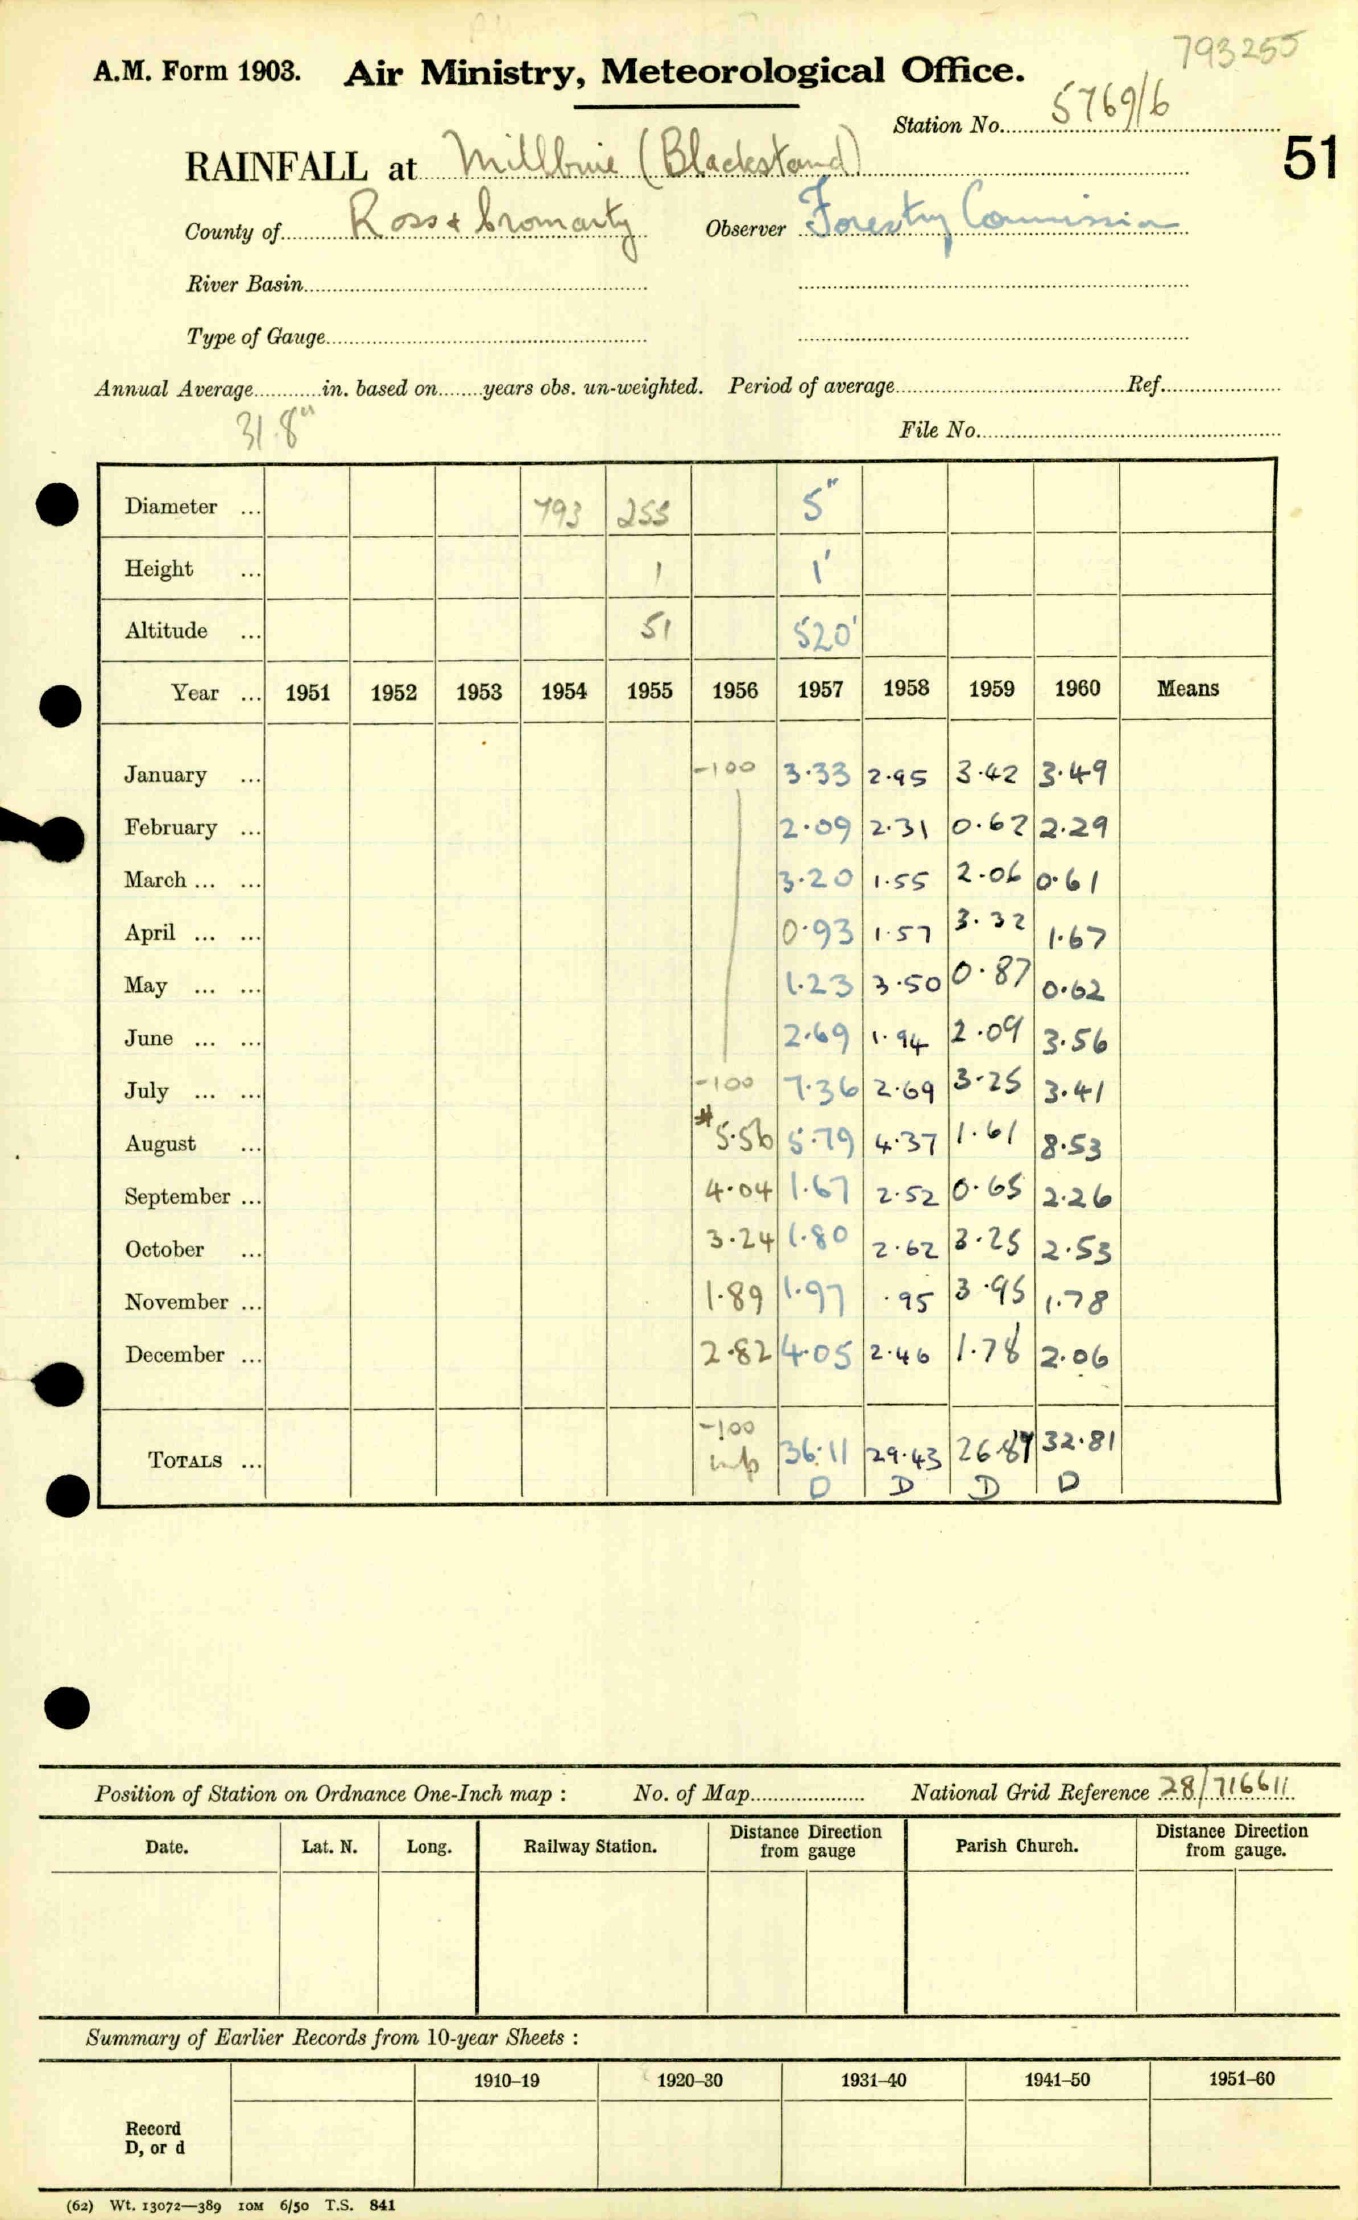 793255
A.M. Form 1903. Air Ministry, Meteorological Office.
Station No. 5769/6
51
RAINFALL at Millbuie (Blackstand)
County of Ross & Cromarty Observer Forestry Commission
River Basin
Type of Gauge
Annual Average in. based on years obs. un-weighted. Period of average Ref.
31.8"
File No.
Diameter ... 793 255 5"
Height ... 1 1'
Altitude ... 51 520'
Year ... 1951 1952 1953 1954 1955 1956 1957 1958 1959 1960 Means
January ... -100 3.33 2.95 3.42 3.49
February ... 2.09 2.31 0.62 2.29
March ... ... 3.20 1.55 2.06 0.61
April ... ... 0.93 1.57 3.32 1.67
May ... ... 1.23 3.50 0.87 0.62
June ... ... 2.69 1.94 2.09 3.56
July ... ... -100 7.36 2.69 3.25 3.41
August ... #5.56 5.79 4.37 1.61 8.53
September ... 4.04 1.67 2.52 0.65 2.26
October ... 3.24 1.80 2.62 3.25 2.53
November ... 1.89 1.97 .95 3.95 1.78
December ... 2.82 4.05 2.46 1.78 2.06
-100
TOTALS ... 36.11 29.43 26.87 32.81
D D D D
Position of Station on Ordnance One-Inch map : No. of Map National Grid Reference 28/716611
Date. Lat. N. Long. Railway Station. Distance from Direction gauge Parish Church. Distance from Direction gauge.
Summary of Earlier Records from 10-year Sheets :
1910–19 1920–30 1931–40 1941–50 1951–60
Record
D, or d
(62) Wt. 13072—389 10M 6/50 T.S. 841